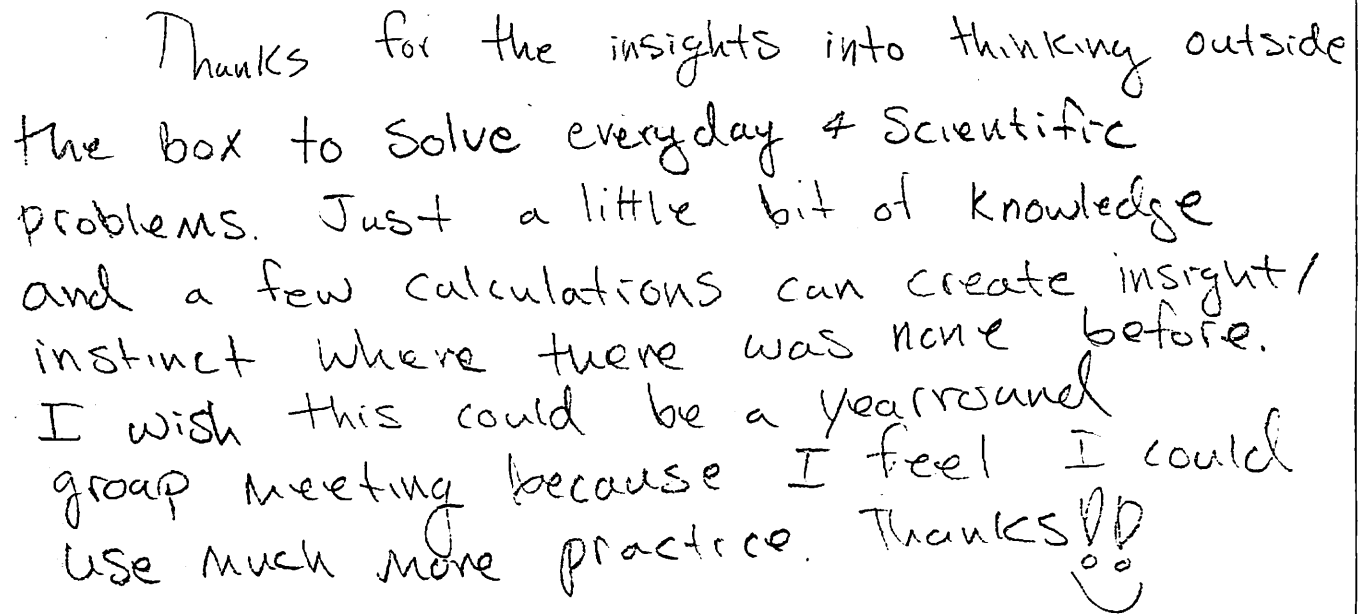 Thanks for the insights into thinking outside
the box to solve everyday & scientific
problems. Just a little bit of knowledge
and a few calculations can create insight/
instinct where there was none before.
I wish this could be a yearround
group meeting because I feel I could
use much more practice. Thanks!!